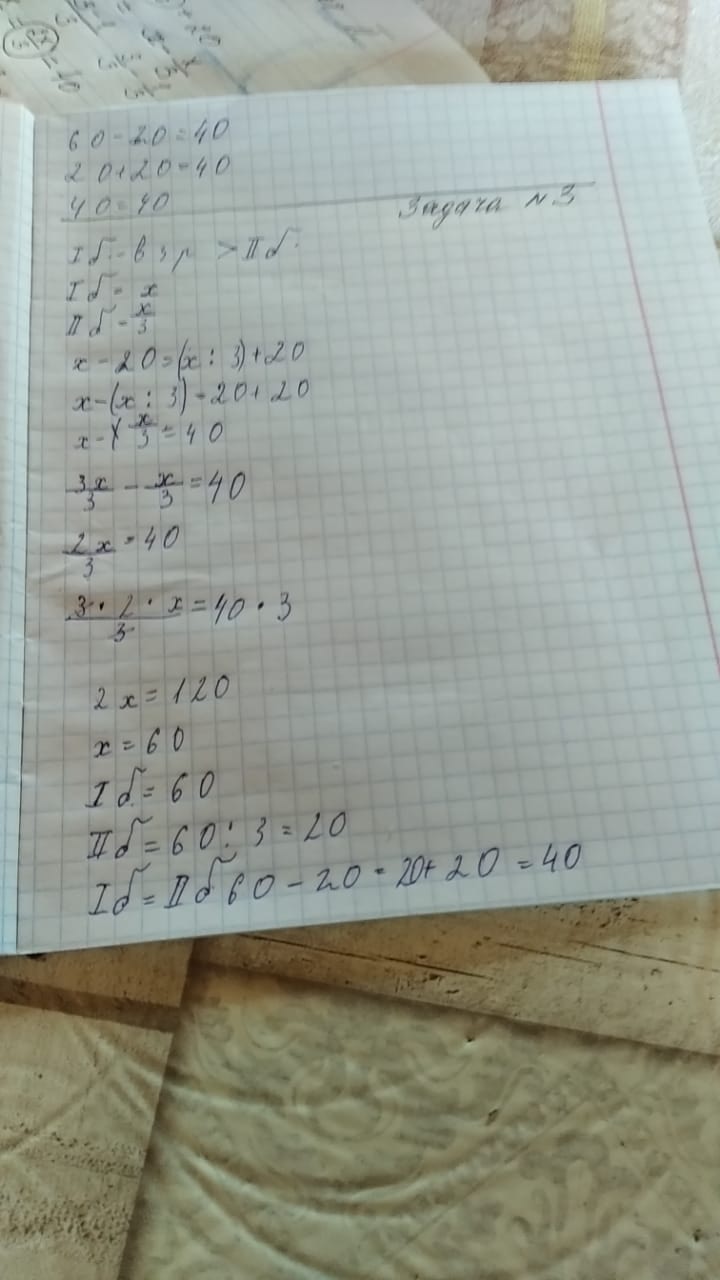 60-20=40
20+20=40
40=40
Задача №3
I б.-в 3 р > II б.
I б = x
II б - x/3
x-20=(x:3)+20
x-(x:3)=20+20
x- x/3=40
3x/3 - x/3=40
2x/3=40
3·2·x/3=40·3
2x=120
x=60
I б=60
II б=60:3=20
I б=II б 60-20=20+20=40